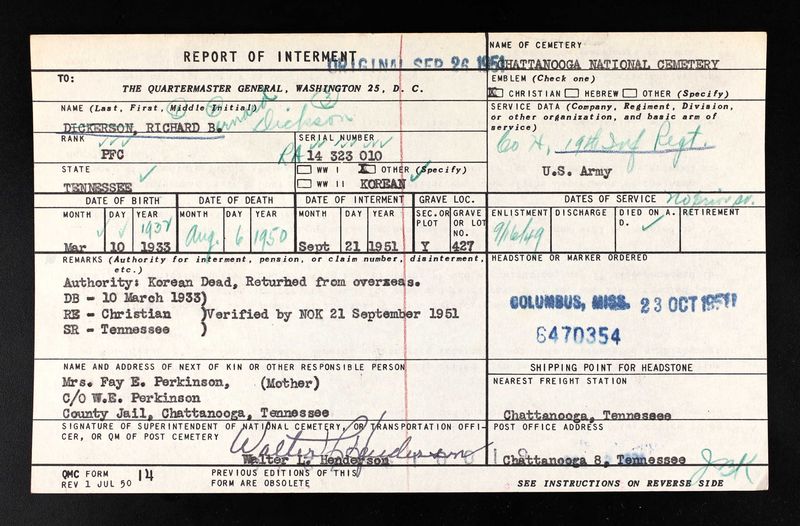 REPORT OF INTERMENT
ORIGINAL SEP 26 1951
TO:
THE QUARTERMASTER GENERAL, WASHINGTON 25, D. C.
NAME OF CEMETERY
CHATTANOOGA NATIONAL CEMETERY
EMBLEM (Check one)
X CHRISTIAN HEBREW OTHER (Specify)
NAME (Last, First, Middle Initial)
DICKERSON, RICHARD B.ernard Dickson
SERVICE DATA (Company, Regiment, Division, or other organization, and basic arm of service)
Co H, 19th Inf Regt.
U.S. Army
RANK
PFC
SERIAL NUMBER
RA 14 323 010
STATE
TENNESSEE
WW I X OTHER (Specify)
WW II KOREAN
DATE OF BIRTH DATE OF DEATH DATE OF INTERMENT GRAVE LOC. DATES OF SERVICE
MONTH DAY YEAR MONTH DAY YEAR MONTH DAY YEAR SEC.OR PLOT GRAVE OR LOT NO. ENLISTMENT DISCHARGE DIED ON A. D. RETIREMENT
1932
Mar 10 1933 Aug. 6 1950 Sept 21 1951 Y 427 9/16/49
REMARKS (Authority for interment, pension, or claim number, disinterment, etc.)
Authority: Korean Dead, Returhed from overseas.
DB - 10 March 1933)
RE - Christian )Verified by NOK 21 September 1951
SR - Tennessee )
HEADSTONE OR MARKER ORDERED
COLUMBUS, MISS. 23 OCT 1951
6470354
NAME AND ADDRESS OF NEXT OF KIN OR OTHER RESPONSIBLE PERSON
Mrs. Fay E. Perkinson, (Mother)
C/O W.E. Perkinson
County Jail, Chattanooga, Tennessee
SHIPPING POINT FOR HEADSTONE
NEAREST FREIGHT STATION
Chattanooga, Tennessee
SIGNATURE OF SUPERINTENDENT OF NATIONAL CEMETERY, OR TRANSPORTATION OFFICER, OR QM OF POST CEMETERY
Walter L. Henderson
Walter L. Henderson
POST OFFICE ADDRESS
Chattanooga 8, Tennessee
QMC FORM 14
REV 1 JUL 50
PREVIOUS EDITIONS OF THIS
FORM ARE OBSOLETE
SEE INSTRUCTIONS ON REVERSE SIDE